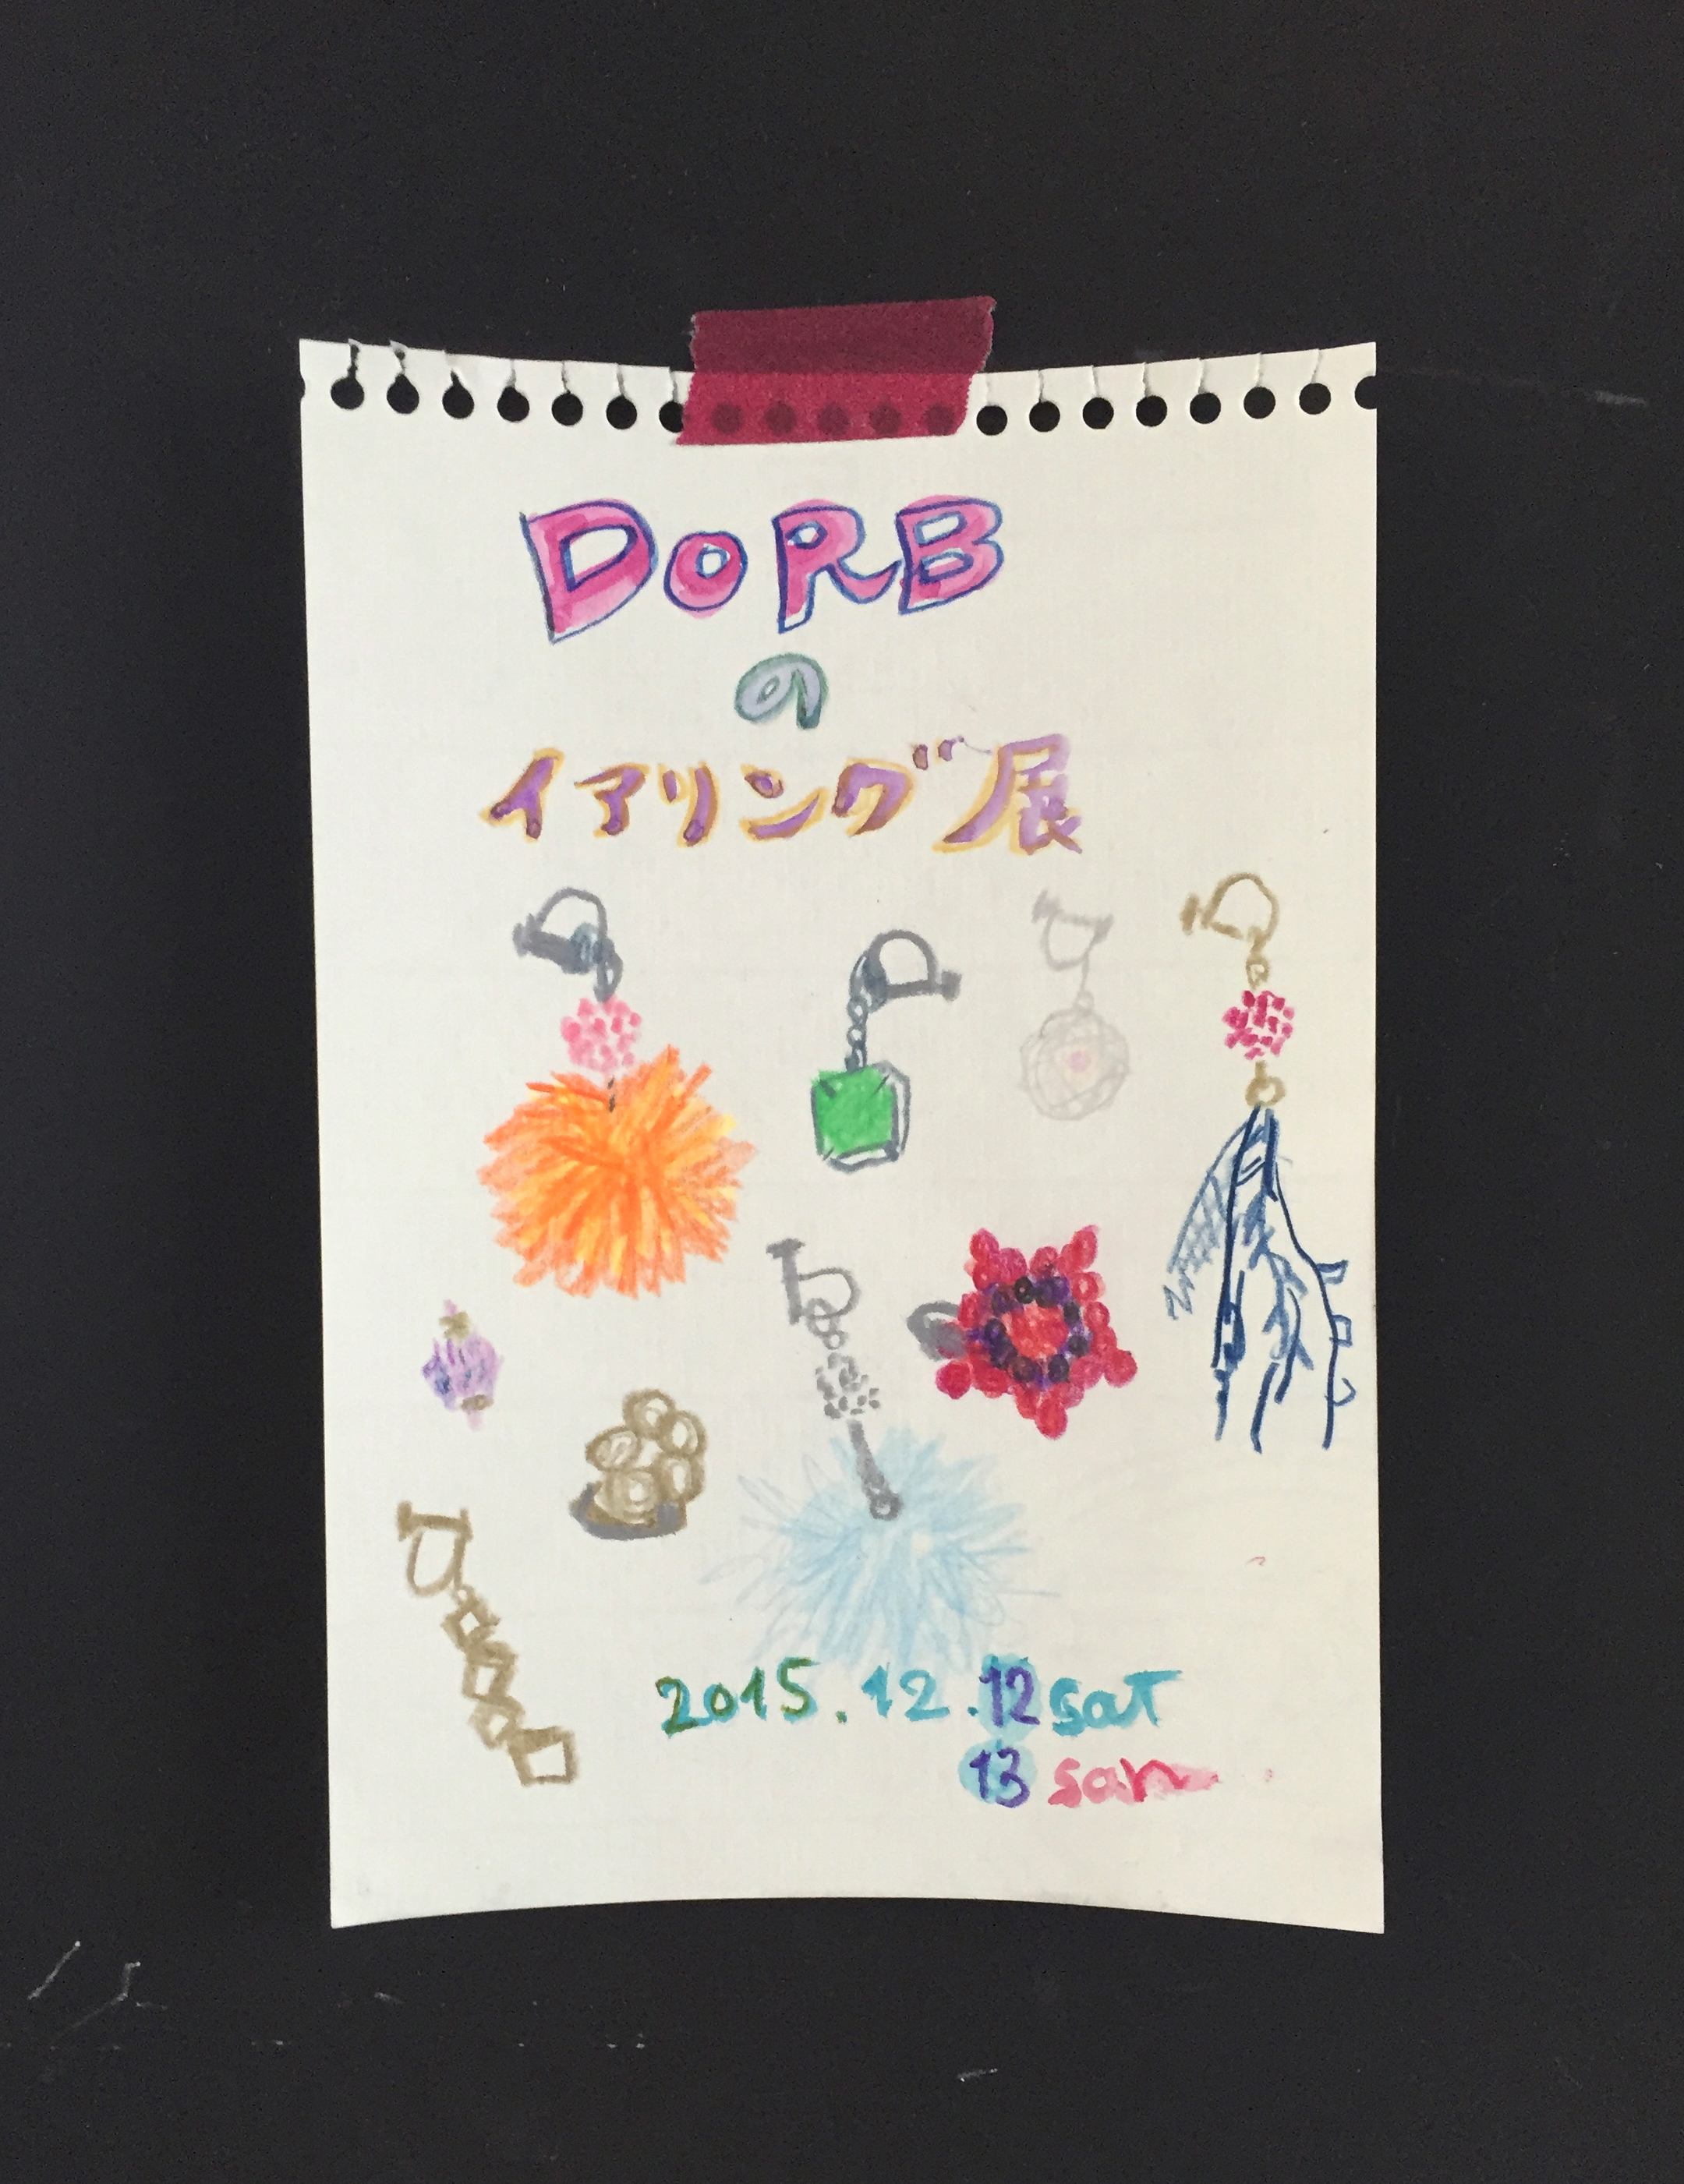 DORB
の
イアリング展
2015.12.12 sat
13 san